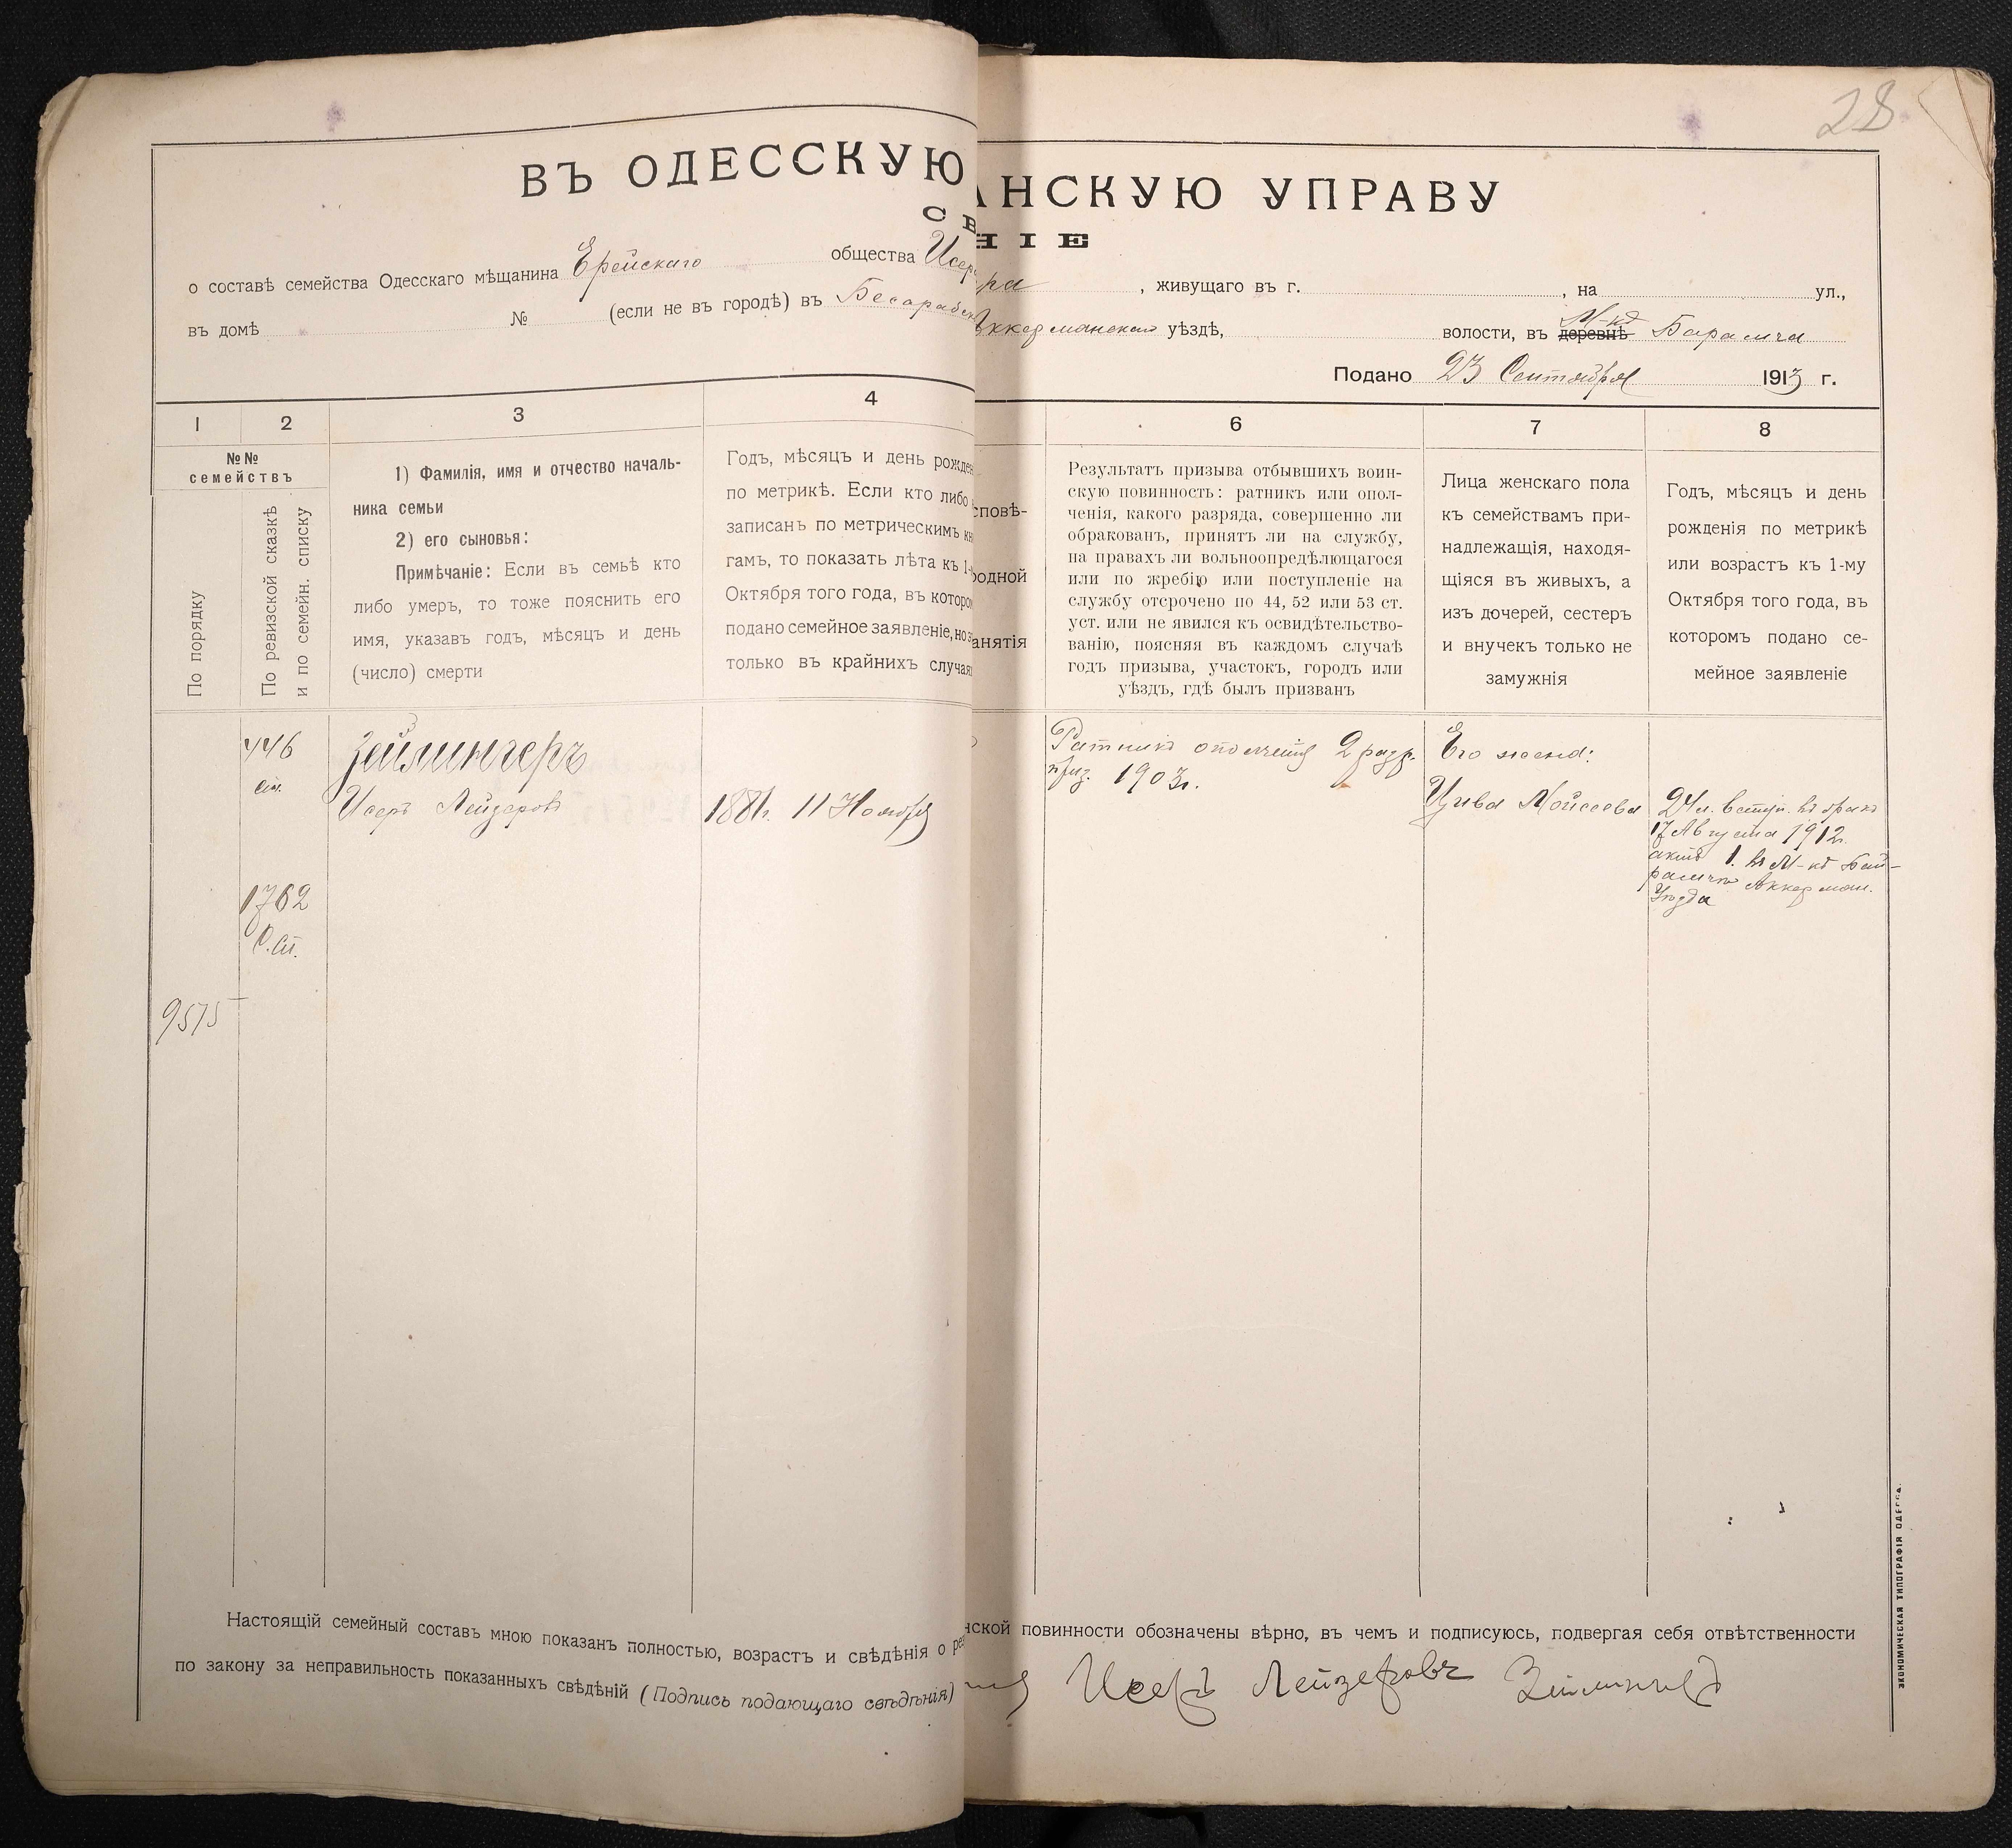 28
ВЪ ОДЕССКУЮ
АНСКУЮ УПРАВУ
СВ
НІЕ
о составѣ семейства Одесскаго мѣщанина Ерейскаго общества Исер
ра , живущаго въ г. , на ул.,
въ домѣ № (если не въ городѣ) въ Бесарабск
Аккерманскаго уѣздѣ, волости, въ деревнѣ М-кѣ Барамча
Подано 23 Сентября 1913 г.
1 2 3 4
6 7 8
№№
семействъ
По порядку
По ревизской сказкѣ
и по семейн. списку
1) Фамилія, имя и отчество началь-
ника семьи
2) его сыновья:
Примѣчаніе: Если въ семьѣ кто
либо умеръ, то тоже пояснить его
имя, указавъ годъ, мѣсяцъ и день
(число) смерти
Годъ, мѣсяцъ и день рожден
по метрикѣ. Если кто либо н
записанъ по метрическимъ кн
гамъ, то показать лѣта къ 1-
Октября того года, въ которо
подано семейное заявленіе, но э
только въ крайнихъ случая
сповѣ-
родной
анятія
Результатъ призыва отбывшихъ воин-
скую повинность: ратникъ или опол-
ченія, какого разряда, совершенно ли
обракованъ, принятъ ли на службу,
на правахъ ли вольноопредѣлющагося
или по жребію или поступленіе на
службу отсрочено по 44, 52 или 53 ст.
уст. или не явился къ освидѣтельство-
ванію, поясняя въ каждомъ случаѣ
годъ призыва, участокъ, городъ или
уѣздъ, гдѣ былъ призванъ
Лица женскаго пола
къ семействамъ при-
надлежащія, находя-
щіяся въ живыхъ, а
изъ дочерей, сестеръ
и внучекъ только не
замужнія
Годъ, мѣсяцъ и день
рожденія по метрикѣ
или возрастъ къ 1-му
Октября того года, въ
которомъ подано се-
мейное заявленіе
446
1762
9575
Зейлингеръ
Исеръ Лейзеровъ
1881г. 11 Ноября
Ратникъ ополченія 2 разр.
приз. 1903г.
Его жена:
Цива Мойсеева
24 л. вступ. въ бракъ
17 Августа 1912г.
актъ 1. въ М-кѣ Бай-
рамча Аккерман.
Уѣзда
Настоящій семейный составъ мною показанъ полностью, возрастъ и свѣдѣнія о ре
нской повинности обозначены вѣрно, въ чемъ и подписуюсь, подвергая себя отвѣтственности
по закону за неправильность показанныхъ свѣдѣній (Подпись подающаго свѣдѣнія)
Исеръ Лейзеровъ Зейлингеръ
ЭКОНОМИЧЕСКАЯ ТИПОГРАФІЯ ОДЕССА.